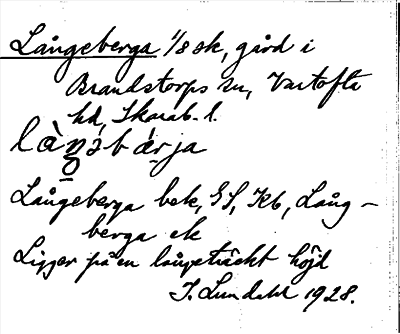 Långeberga 1/8 sk, gård i
Brandstorps sn, Vartofta
hd, Skarab. l.
làŋ̥əbærja
Långeberga bek, GS, Kb, Lång-
berga ek
Ligger på en långsträckt höjd
I. Lundahl 1928.